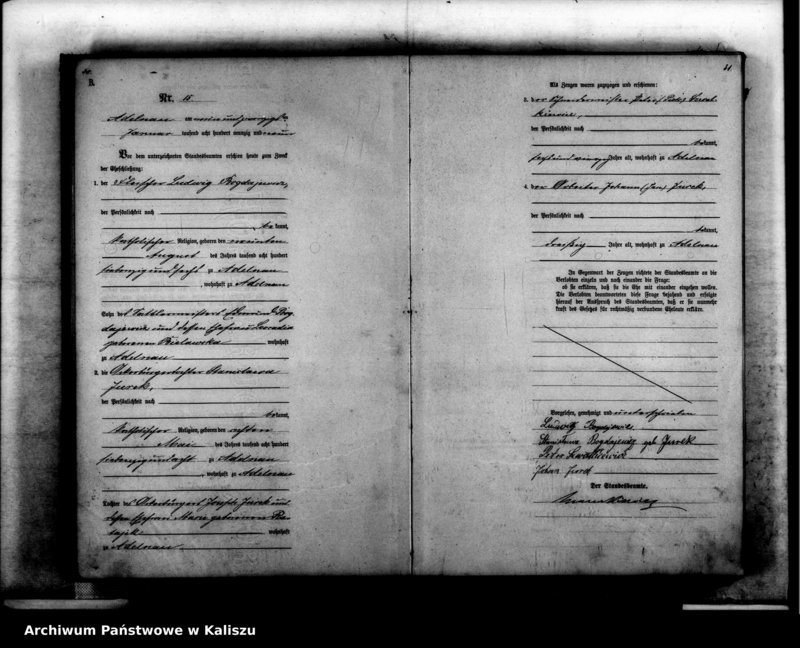 B.
Nr. 15
Adelnau am neun und zwanzigsten
Januar tausend acht hundert neunzig und neun
Vor dem unterzeichneten Standesbeamten erschien heute zum Zweck
der Eheschließung:
1. der Fleischer Ludwig Bogdajewicz,
der Persönlichkeit nach
be kannt,
katholischer Religion, geboren den neunten
August des Jahres tausend acht hundert
siebenzig und sechs zu Adelnau
, wohnhaft zu Adelnau
Sohn des Sattlermeisters Bog
dajewicz und dessen Ehefrau
geborenen Bielawska wohnhaft
zu Adelnau
2. die Ackerbürgertochter Stanislawa
Jurek,
der Persönlichkeit nach
bekannt,
katholischer Religion, geboren den achten
Mai des Jahres tausend acht hundert
siebenzig und acht zu Adelnau
, wohnhaft zu Adelnau
Tochter des Ackerbürgers Joseph Jurek und
dessen Ehefrau Marie geborenen
wohnhaft
zu Adelnau
31.
Als Zeugen waren zugezogen und erschienen:
3. der Schneidermeister Peter
der Persönlichkeit nach
bekannt,
Jahre alt, wohnhaft zu Adelnau
4. der Arbeiter Johann (Jan) Jurek,
der Persönlichkeit nach
bekannt,
dreißig Jahre alt, wohnhaft zu Adelnau
In Gegenwart der Zeugen richtete der Standesbeamte an die
Verlobten einzeln und nach einander die Frage:
ob sie erklären, daß sie die Ehe mit einander eingehen wollen.
Die Verlobten beantworteten diese Frage bejahend und erfolgte
hierauf der Ausspruch des Standesbeamten, daß er sie nunmehr
kraft des Gesetzes für rechtmäßig verbundene Eheleute erkläre.
Vorgelesen, genehmigt und unterschrieben
Ludwig Bogdajewicz
Stanislawa Bogdajewicz geb Jurek
Peter
Johan Jurek
Der Standesbeamte.
Archiwum Państwowe w Kaliszu